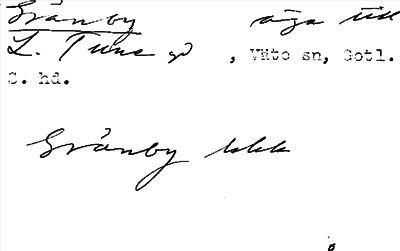 Gränby äga till
L. Tune gd, Väte sn, Gotl.
S. hd.
Gränby kkk